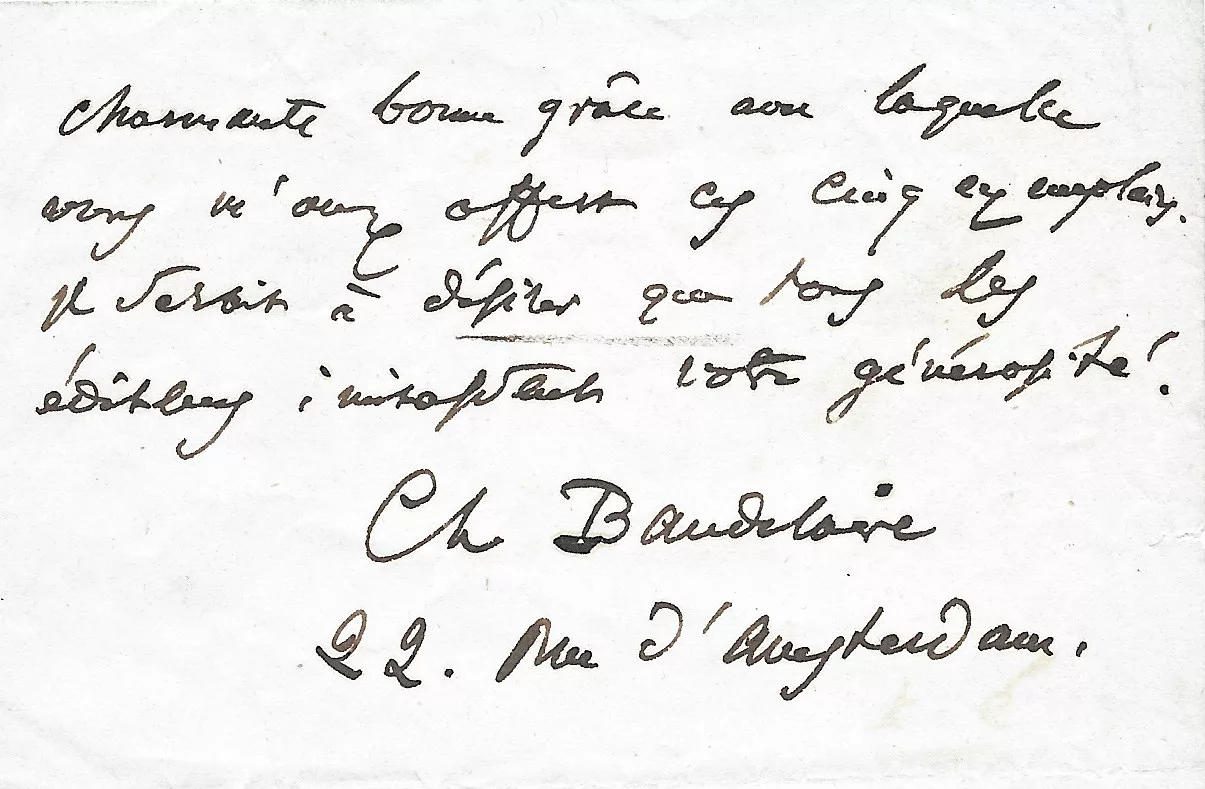 charmante bonne grâce avec laquelle
vous m'avez offert ces cinq exemplaires.
il serait à désirer que tous les
éditeurs imitassent votre générosité.
Ch Baudelaire
22. Rue d'Amsterdam.